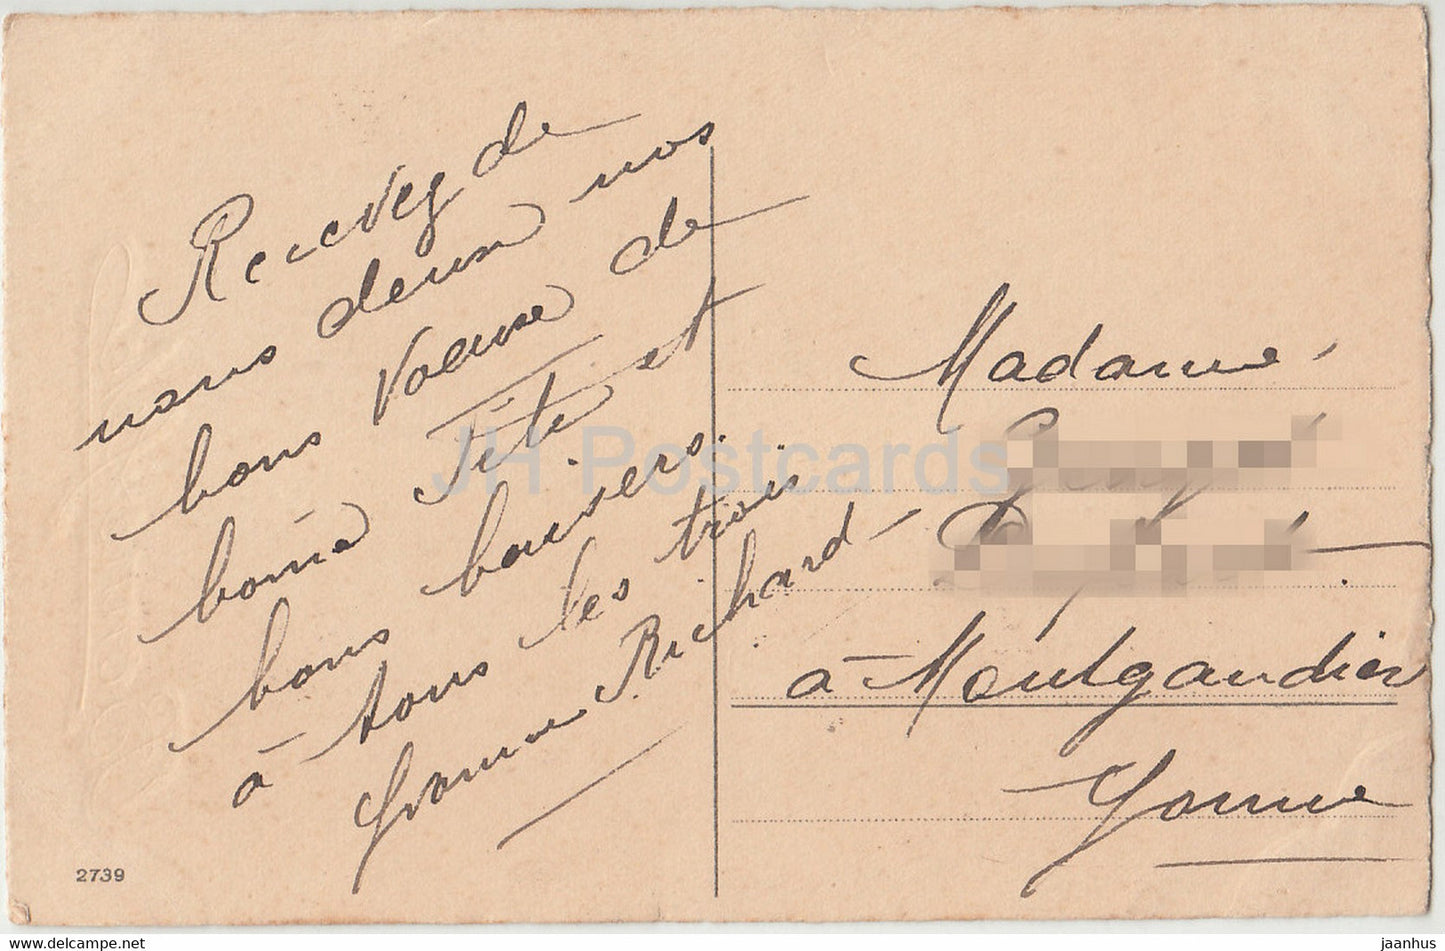 Recevez de
nous deux nos
bons Vœux de
bonne Fête et
bons baisers.
à tous les trois
Yvonne Richard
Madame
à Montgaudier
Yonne
2739
JH Postcards
www.hippostcard.com
jaanhus